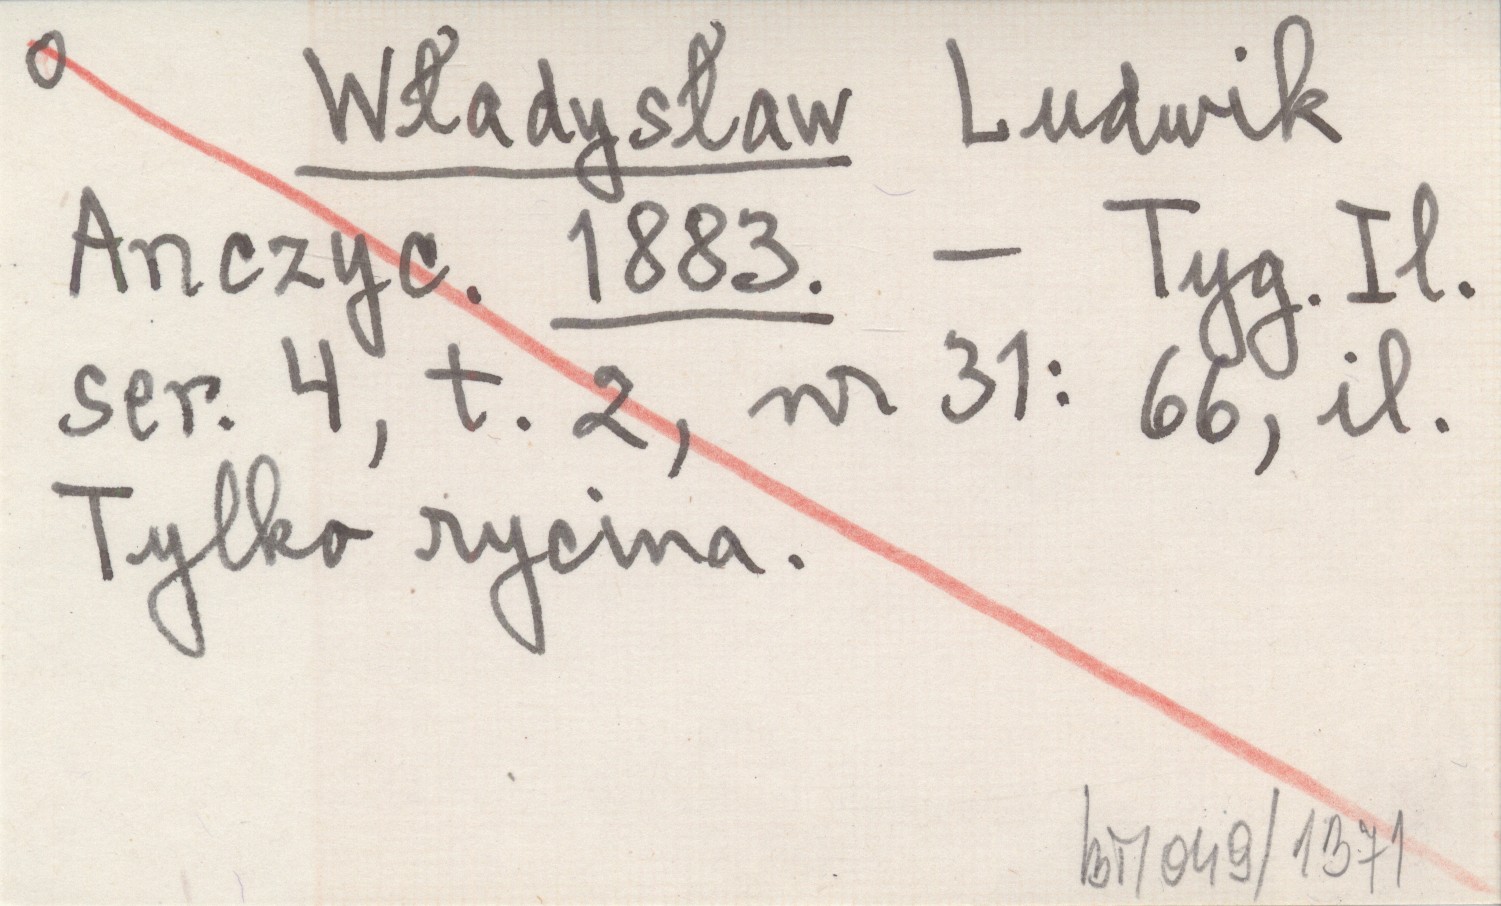 0 Władysław Ludwik
Anczyc. 1883. – Tyg. Il.
ser. 4, t. 2, nr 31: 66, il.
Tylko rycina.
049/1371